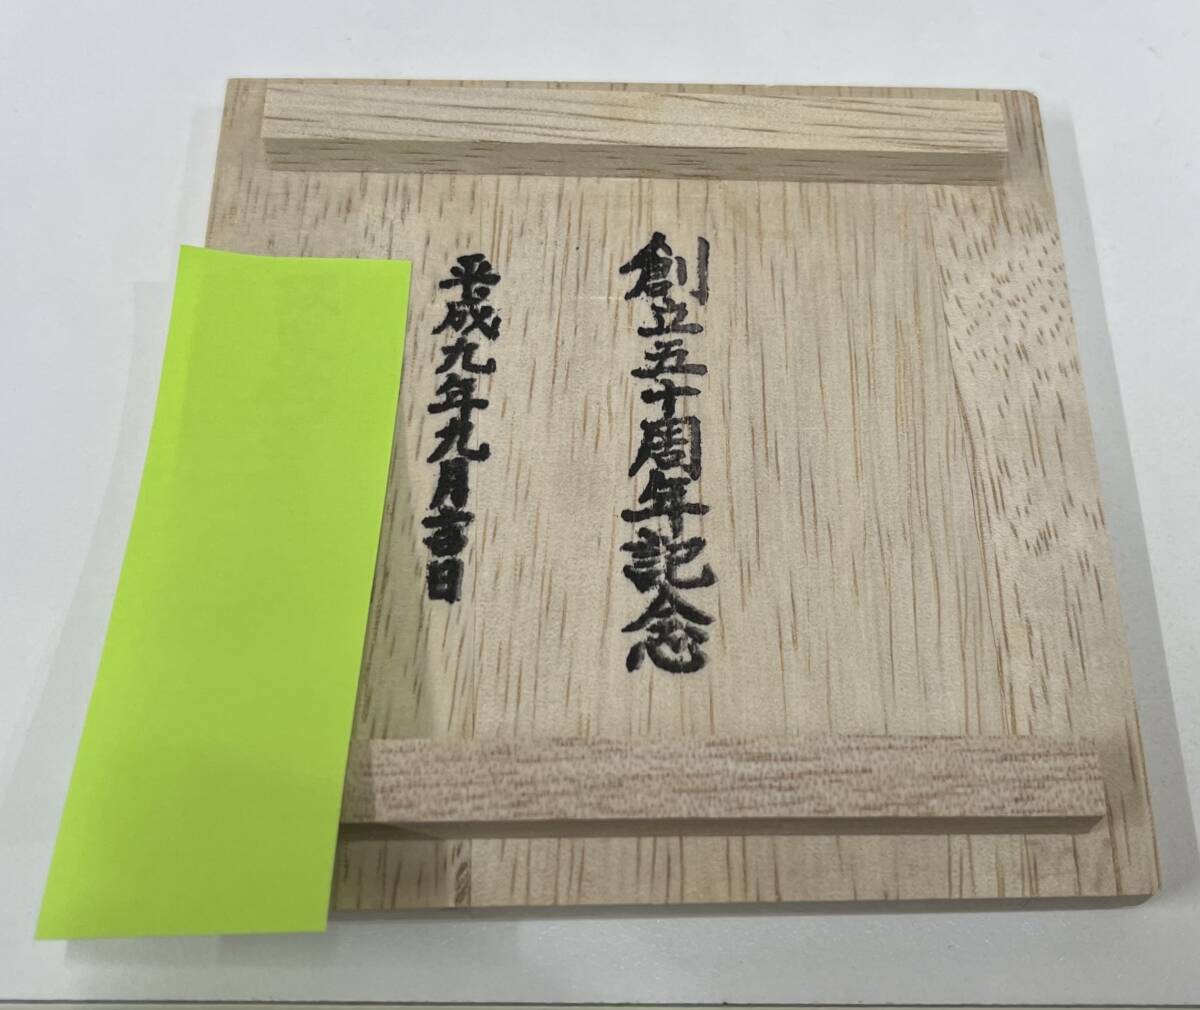 創立五十周年記念
平成九年九月吉日